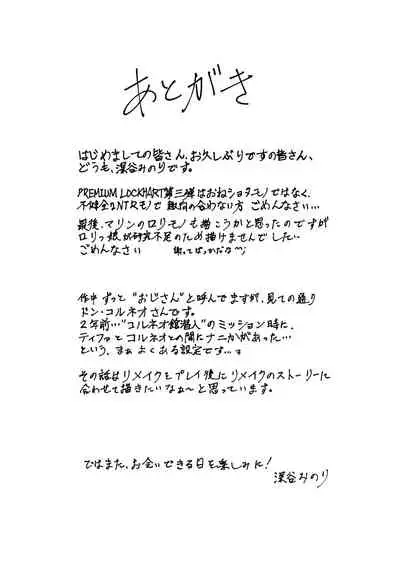 あとがき
はじめましての皆さん、お久しぶりですの皆さん、
どうも、深谷みのりです。
PREMIUM LOCKHART第三弾はおねショタモノではなく、
不健全なNTRモノで 趣向の合わない方 ごめんなさい…
最後、マリンのロリモノも描こうかと思ったのですが
ロリっ娘が研究不足のため描けませんでした…
ごめんなさい 謝ってばっかだな
作中ずっと"おじさん"と呼んでますが、見ての通り
ドン・コルネオさんです。
2年前…"コルネオ館潜入"のミッション時に、
ティファとコルネオとの間にナニかがあった…
という、まぁ よくある設定です…
その話はリメイクをプレイ後にリメイクのストーリーに
合わせて描きたいなぁ〜と思っています。
ではまた、お会いできる日を楽しみに!
深谷みのり